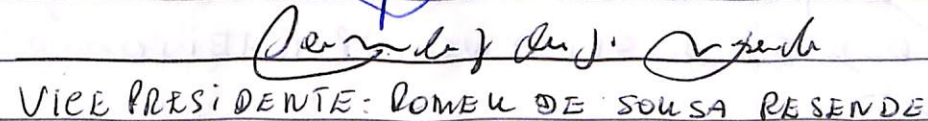 VICE PRESIDENTE: ROMEU DE SOUSA RESENDE